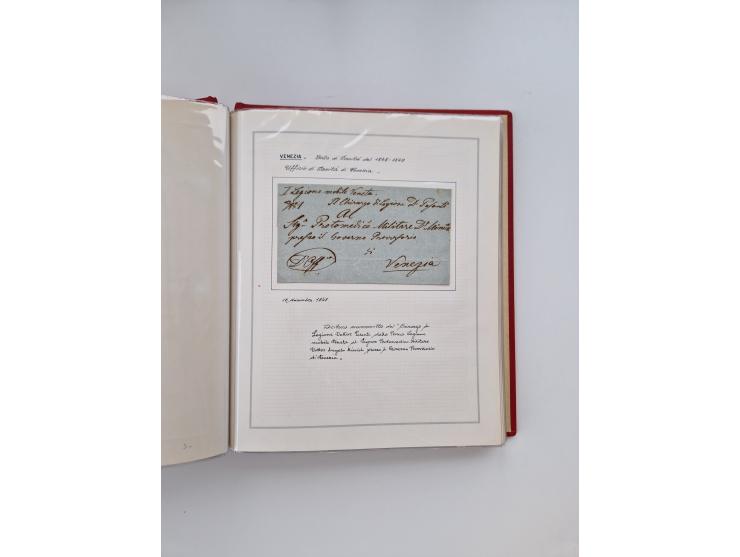 VENEZIA - Bollo di Sanità del 1848-1849
Ufficio di Sanità di Venezia.
I Legione mobile Veneta.
N. 1 Il Chirurgo di Legione Dr
Al
Sigr Protomedico Militare Dr
presso il Governo Provvisorio
di
D'Uff Venezia
1848
Lettera manoscritta del Chirurgo di
Legione Dottor della Prima Legione
mobile Veneta al Signor Protomedico Militare
Dottor Angelo presso il Governo Provvisorio
di Venezia.
3-